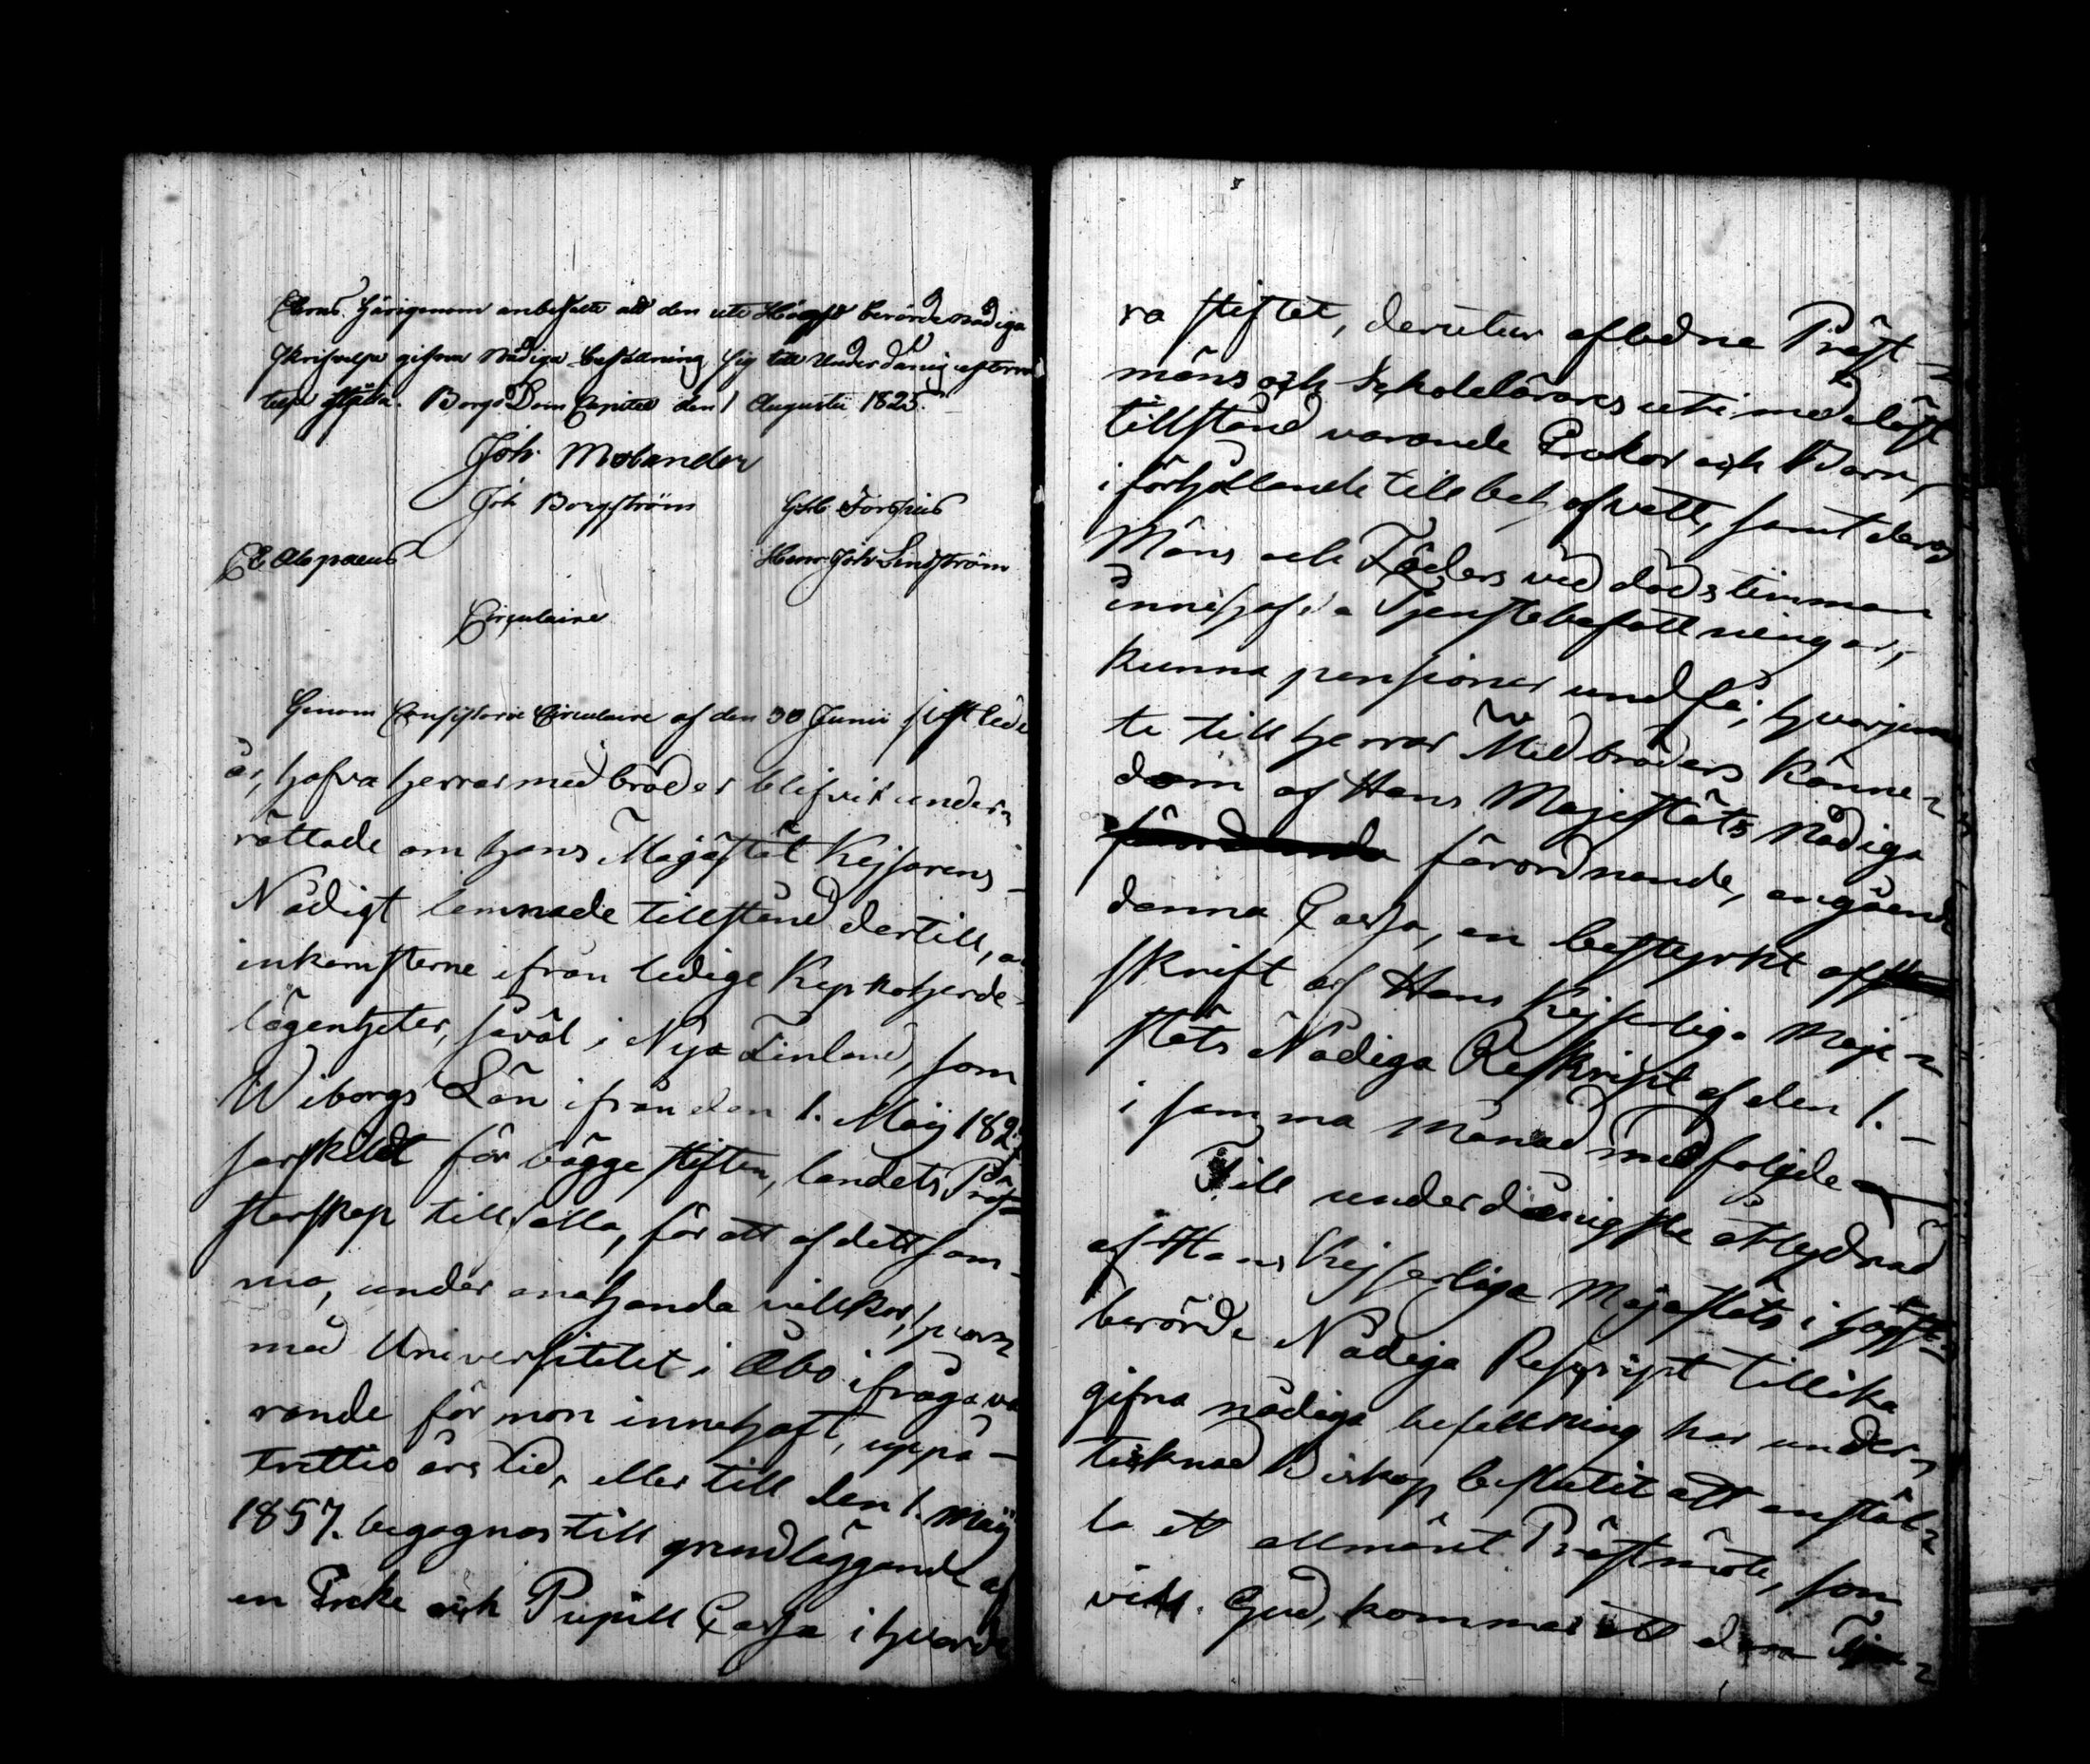 Eder härigenom anbefalle att den uti Högst berörde nådiga
skrifvelse gifvne Nådiga befallning sig till Underdånig efterrät
telse ställa. Borgo Dom Capitel den 1 Augusti 1825.
Joh. Molander
Joh Borgström Gbl Forssius
C E Alopaeus Henr Joh Lindström
Circulaire
Genom Consistorie Circulaire af den 30 Junii sistledit
år, hafva herrar medbröder blifvit under-
rättade om hans Majästät Kejsarens
Nådigt lemnade tillstånd dertill, at
inkomsterne ifrån ledige Kyrkoherde-
lägenheter, såväl i Nya Finland, som
Wiborgs Län ifrån den 1. Maij 182
särskildt för bägge stiften, landets Präst
sterskap tillfalla, för att af detsam-
ma, under enahanda villkor, hvar
med Universitetet i Åbo ifråga va
rande förmon innehaft, uppå
trettio års tid, eller till den 1. Maij
1857. begagnas till grundläggande af
en Enke och Pupill Cassa i hvarde
ra stiftet, derutur aflidne Präst-
mäns och Scholelärares uti medellöst
tillstånd varande Enkor och Barn,
i förhållande till behofvet, samt deras
Mäns och Fäders vid dödstimman
innehafda Tjenstebefattningar,
kunna pensioner undfå; hvarjem
te till herrar Medbröders känne-
dom af Hans Majestäts Nådiga
förordnande, angående
denna Cassa, en bestyrkt af
skrift af Hans Kejserliga Maje-
stäts Nådiga Reskript af den 1.
i samma månad medföljde
Till underdånigste åtlydnad
af Hans Kejserliga Majestäts i högst
berörde Nådiga Rescript tillika
gifna nådiga befallning har under-
tecknad Biskop beslutit att anstäl-
la et allmänt Prästmöte, som
vill Gud, kommer at den